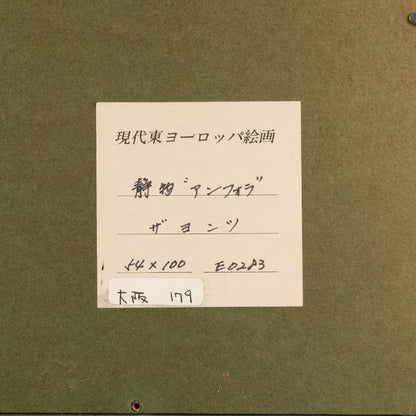 現代東ヨーロッパ絵画
静物 "アンフォラ"
ザヨンツ
54×100 E0283
大阪 179